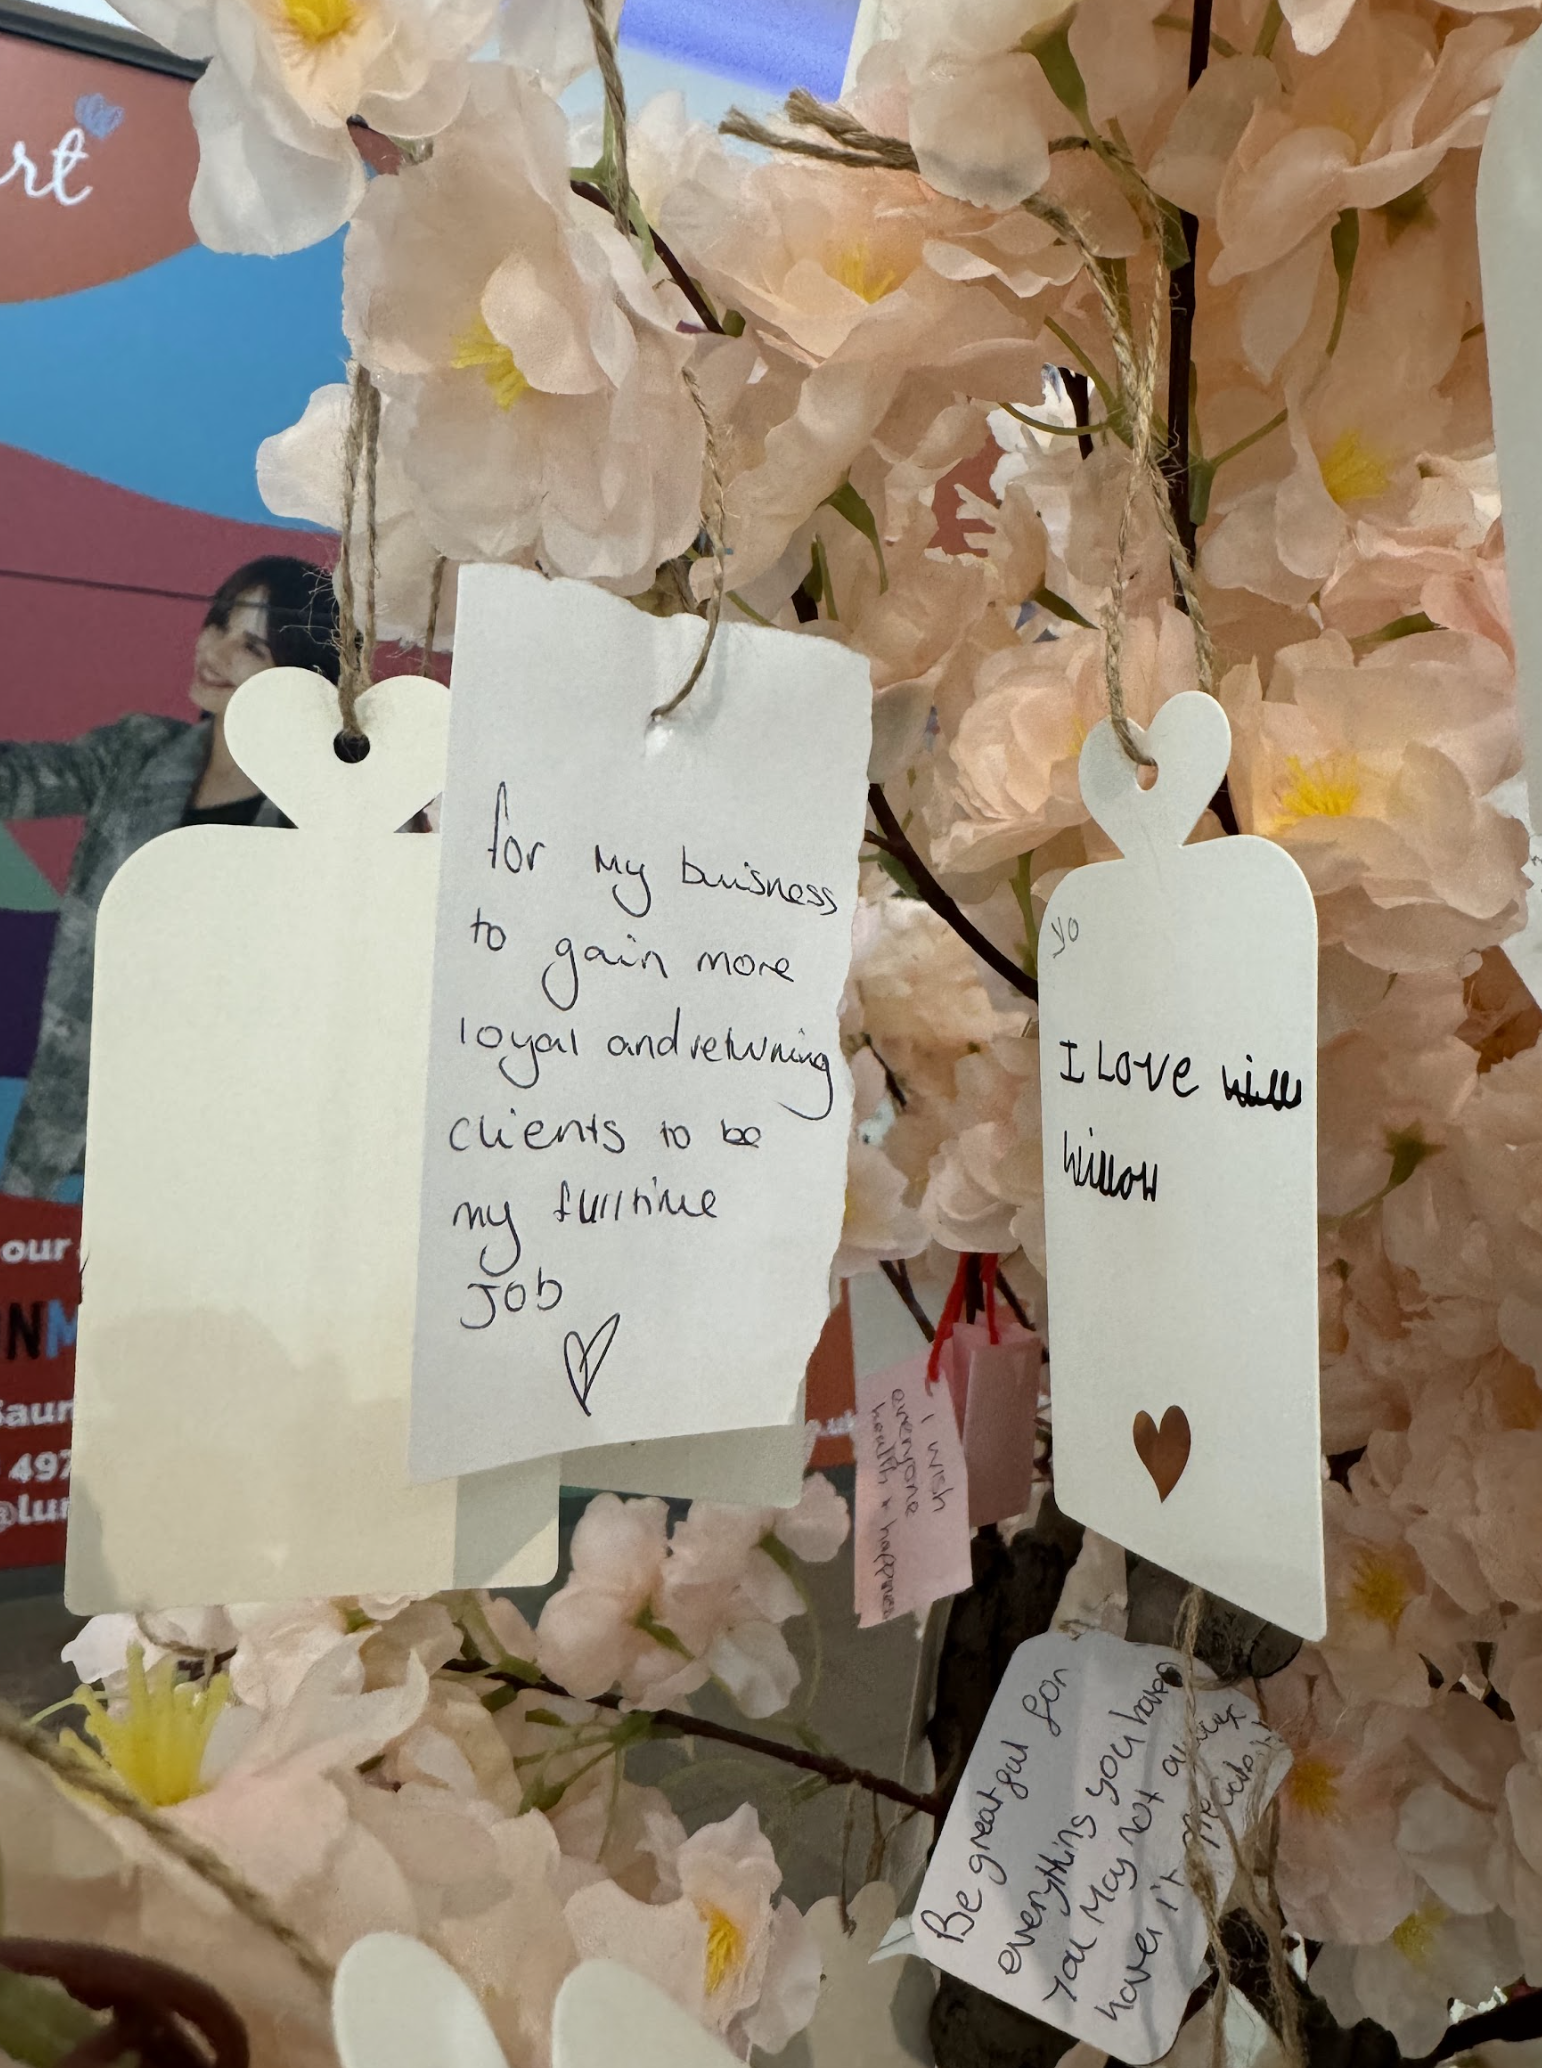 rt
for my buisness
to gain more
loyal and returning
clients to be
my fulltime
Job
yo
I LOVE
Willow
I wish
everyone
health + happiness
Be greatful for
everything you have
you may not always
have it
our
NM
Saun
497
@lun